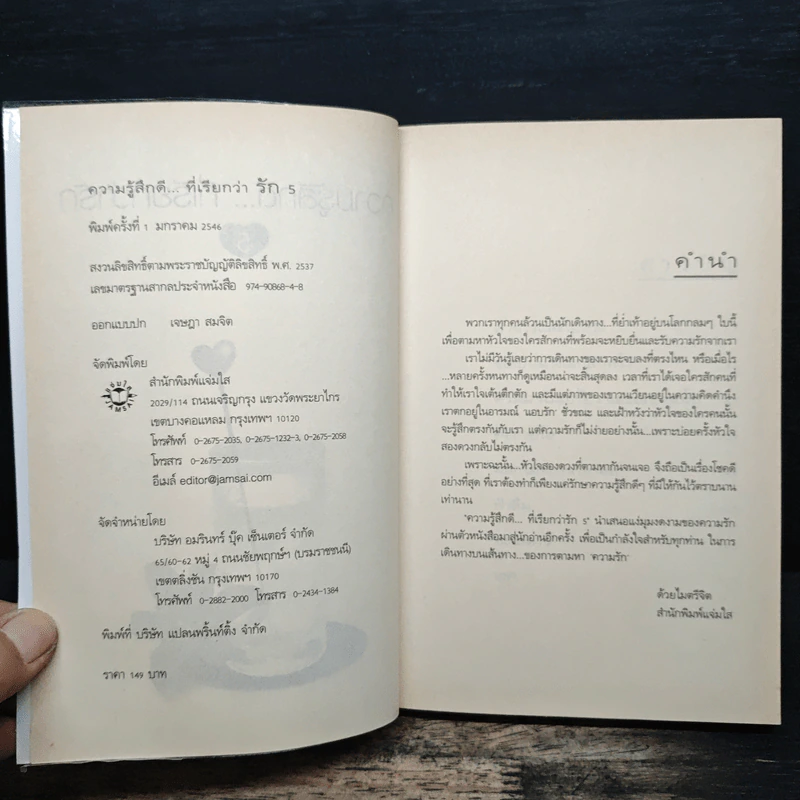 ความรู้สึกดี... ที่เรียกว่า รัก 5
พิมพ์ครั้งที่ 1 มกราคม 2546
สงวนลิขสิทธิ์ตามพระราชบัญญัติลิขสิทธิ์ พ.ศ. 2537
เลขมาตรฐานสากลประจำหนังสือ 974-90868-4-8
ออกแบบปก เจษฎา สมจิต
จัดพิมพ์โดย
สำนักพิมพ์แจ่มใส
2029/114 ถนนเจริญกรุง แขวงวัดพระยาไกร
เขตบางคอแหลม กรุงเทพฯ 10120
โทรศัพท์ 0-2675-2035, 0-2675-1232-3, 0-2675-2058
โทรสาร 0-2675-2059
อีเมล์ editor@jamsai.com
จัดจำหน่ายโดย
บริษัท อมรินทร์ บุ๊ค เซ็นเตอร์ จำกัด
65/60-62 หมู่ 4 ถนนชัยพฤกษ์ฯ (บรมราชชนนี)
เขตตลิ่งชัน กรุงเทพฯ 10170
โทรศัพท์ 0-2882-2000 โทรสาร 0-2434-1384
พิมพ์ที่ บริษัท แปลนพริ้นท์ติ้ง จำกัด
ราคา 149 บาท
คำนำ
พวกเราทุกคนล้วนเป็นนักเดินทาง...ที่ย่ำเท้าอยู่บนโลกกลมๆ ใบนี้
เพื่อตามหาหัวใจของใครสักคนที่พร้อมจะหยิบยื่นและรับความรักจากเรา
เราไม่มีวันรู้เลยว่าการเดินทางของเราจะจบลงที่ตรงไหน หรือเมื่อไร
...หลายครั้งหนทางก็ดูเหมือนน่าจะสิ้นสุดลง เวลาที่เราได้เจอใครสักคนที่
ทำให้เราใจเต้นตึกตัก และมีแต่ภาพของเขาวนเวียนอยู่ในความคิดคำนึง
เราตกอยู่ในอารมณ์ 'แอบรัก' ชั่วขณะ และเฝ้าหวังว่าหัวใจของใครคนนั้น
จะรู้สึกตรงกันกับเรา แต่ความรักก็ไม่ง่ายอย่างนั้น...เพราะบ่อยครั้งหัวใจ
สองดวงกลับไม่ตรงกัน
เพราะฉะนั้น...หัวใจสองดวงที่ตามหากันจนเจอ จึงถือเป็นเรื่องโชคดี
อย่างที่สุด ที่เราต้องทำก็เพียงแค่รักษาความรู้สึกดีๆ ที่มีให้กันไว้ตราบนาน
เท่านาน
'ความรู้สึกดี... ที่เรียกว่ารัก 5' นำเสนอแง่มุมงดงามของความรัก
ผ่านตัวหนังสือมาสู่นักอ่านอีกครั้ง เพื่อเป็นกำลังใจสำหรับทุกท่าน ในการ
เดินทางบนเส้นทาง...ของการตามหา 'ความรัก'
ด้วยไมตรีจิต
สำนักพิมพ์แจ่มใส